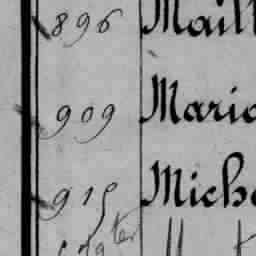 896 Maill
909 Mario
915 Miche